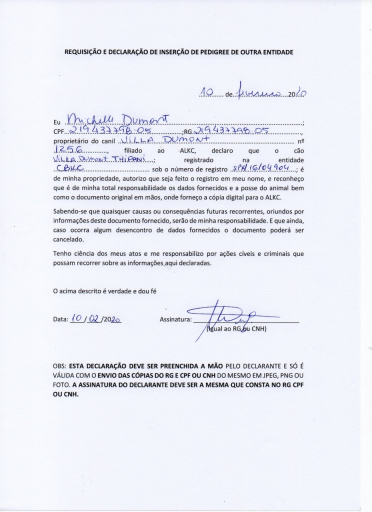 REQUISIÇÃO E DECLARAÇÃO DE INSERÇÃO DE PEDIGREE DE OUTRA ENTIDADE
10 de fevereiro 2010
Eu Michelle Dumont;
CPF 219437798-05;RG 219437798 05,
proprietário do canil VILLA DUMONT nº
1256, filiado ao ALKC, declaro que o cão
VILLA DUMONT; registrado na entidade
CBKC sob o número de registro; é
de minha propriedade, autorizo que seja feito o registro em meu nome, e reconheço
que é de minha total responsabilidade os dados fornecidos e a posse do animal bem
como o documento original em mãos, onde forneço a cópia digital para o ALKC.
Sabendo-se que quaisquer causas ou consequências futuras recorrentes, oriundos por
informações deste documento fornecido, serão de minha responsabilidade. E que ainda,
caso ocorra algum desencontro de dados fornecidos o documento poderá ser
cancelado.
Tenho ciência dos meus atos e me responsabilizo por ações cíveis e criminais que
possam recorrer sobre as informações aqui declaradas.
O acima descrito é verdade e dou fé
Data: 10/02/2020 Assinatura:
(Igual ao RG ou CNH)
OBS: ESTA DECLARAÇÃO DEVE SER PREENCHIDA A MÃO PELO DECLARANTE E SÓ É
VÁLIDA COM O ENVIO DAS CÓPIAS DO RG E CPF OU CNH DO MESMO EM JPEG, PNG OU
FOTO. A ASSINATURA DO DECLARANTE DEVE SER A MESMA QUE CONSTA NO RG CPF
OU CNH.